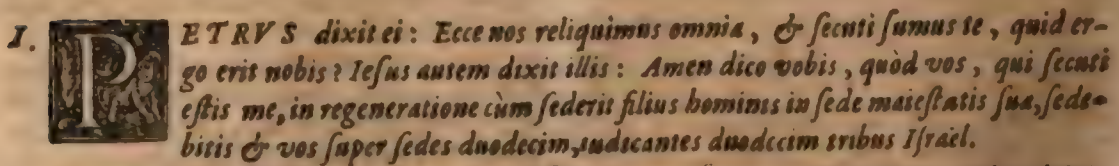 I. PETRVS dixit ei: Ecce nos reliquimus omnia, & ſecuti ſumus te, quid er-
go erit nobis? Ieſus autem dixit illis: Amen dico vobis, quòd vos, qui ſecuti
eſtis me, in regeneratione cùm ſederit filius hominis in ſede maieſtatis ſua, ſede-
bitis & vos ſuper ſedes duodecim, iudicantes duodecim tribus Iſrael.